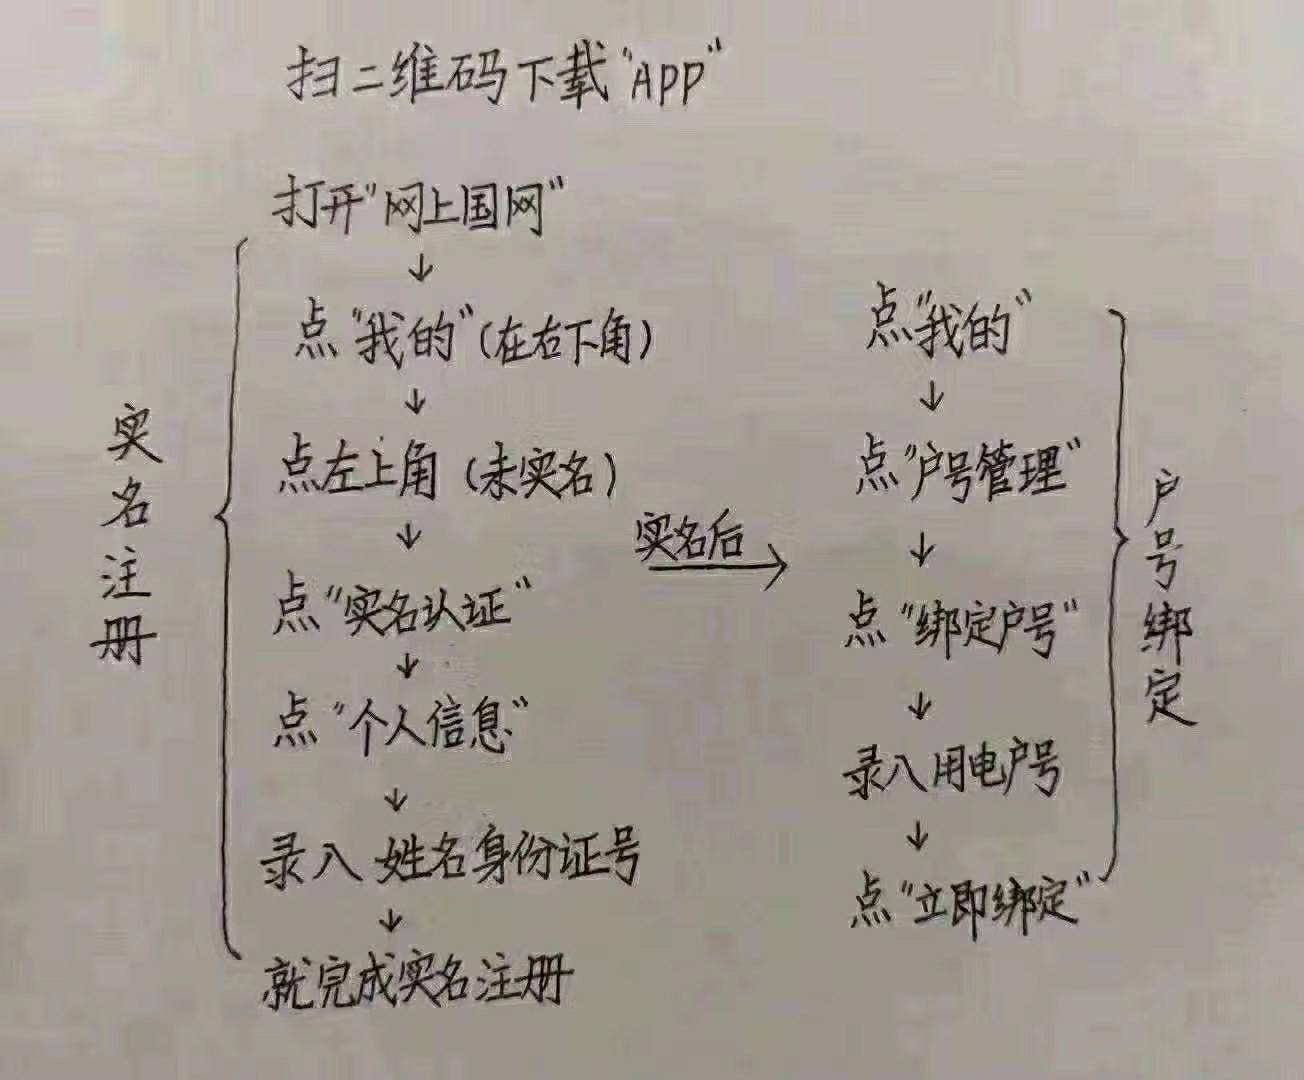 扫二维码下载"APP"
打开"网上国网"
↓
点"我的"(在右下角)
↓
点左上角(未实名)
↓
点"实名认证"
↓
点"个人信息"
↓
录入 姓名身份证号
↓
就完成实名注册
实名注册
实名后
→
点"我的"
↓
点"户号管理"
↓
点"绑定户号"
↓
录入用电户号
↓
点"立即绑定"
户号绑定